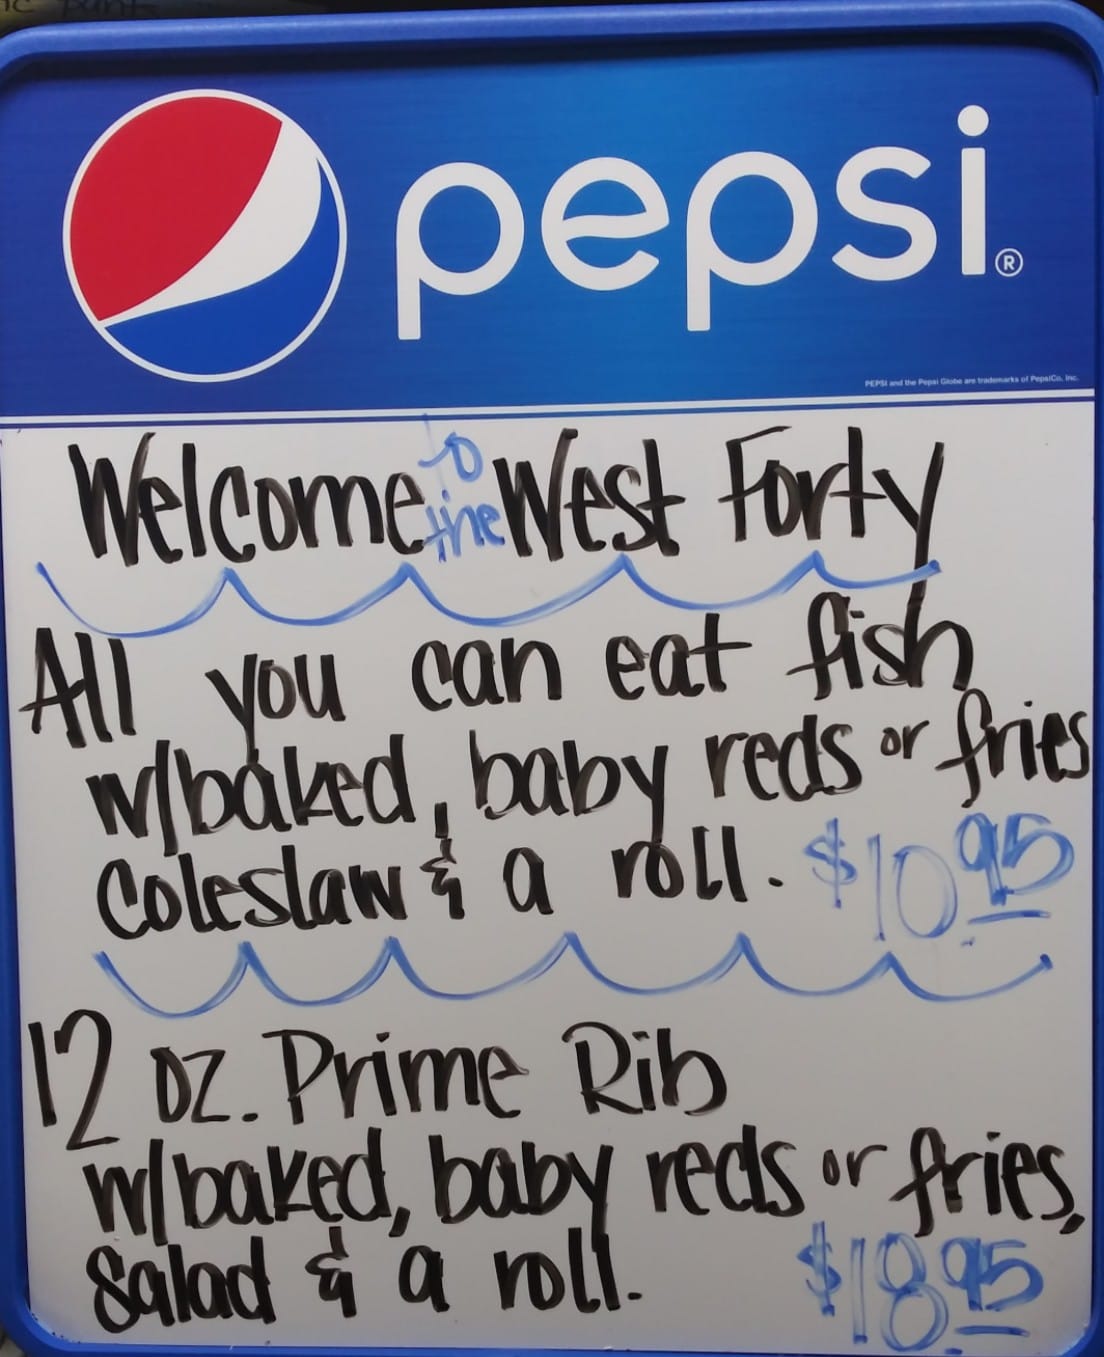 pepsi®
PEPSI and the Pepsi Globe are trademarks of PepsiCo, Inc.
Welcome to the West Forty
All you can eat fish
w/baked, baby reds or fries
Coleslaw & a roll. $10.95
12 oz. Prime Rib
w/baked, baby reds or fries,
Salad & a roll. $18.95